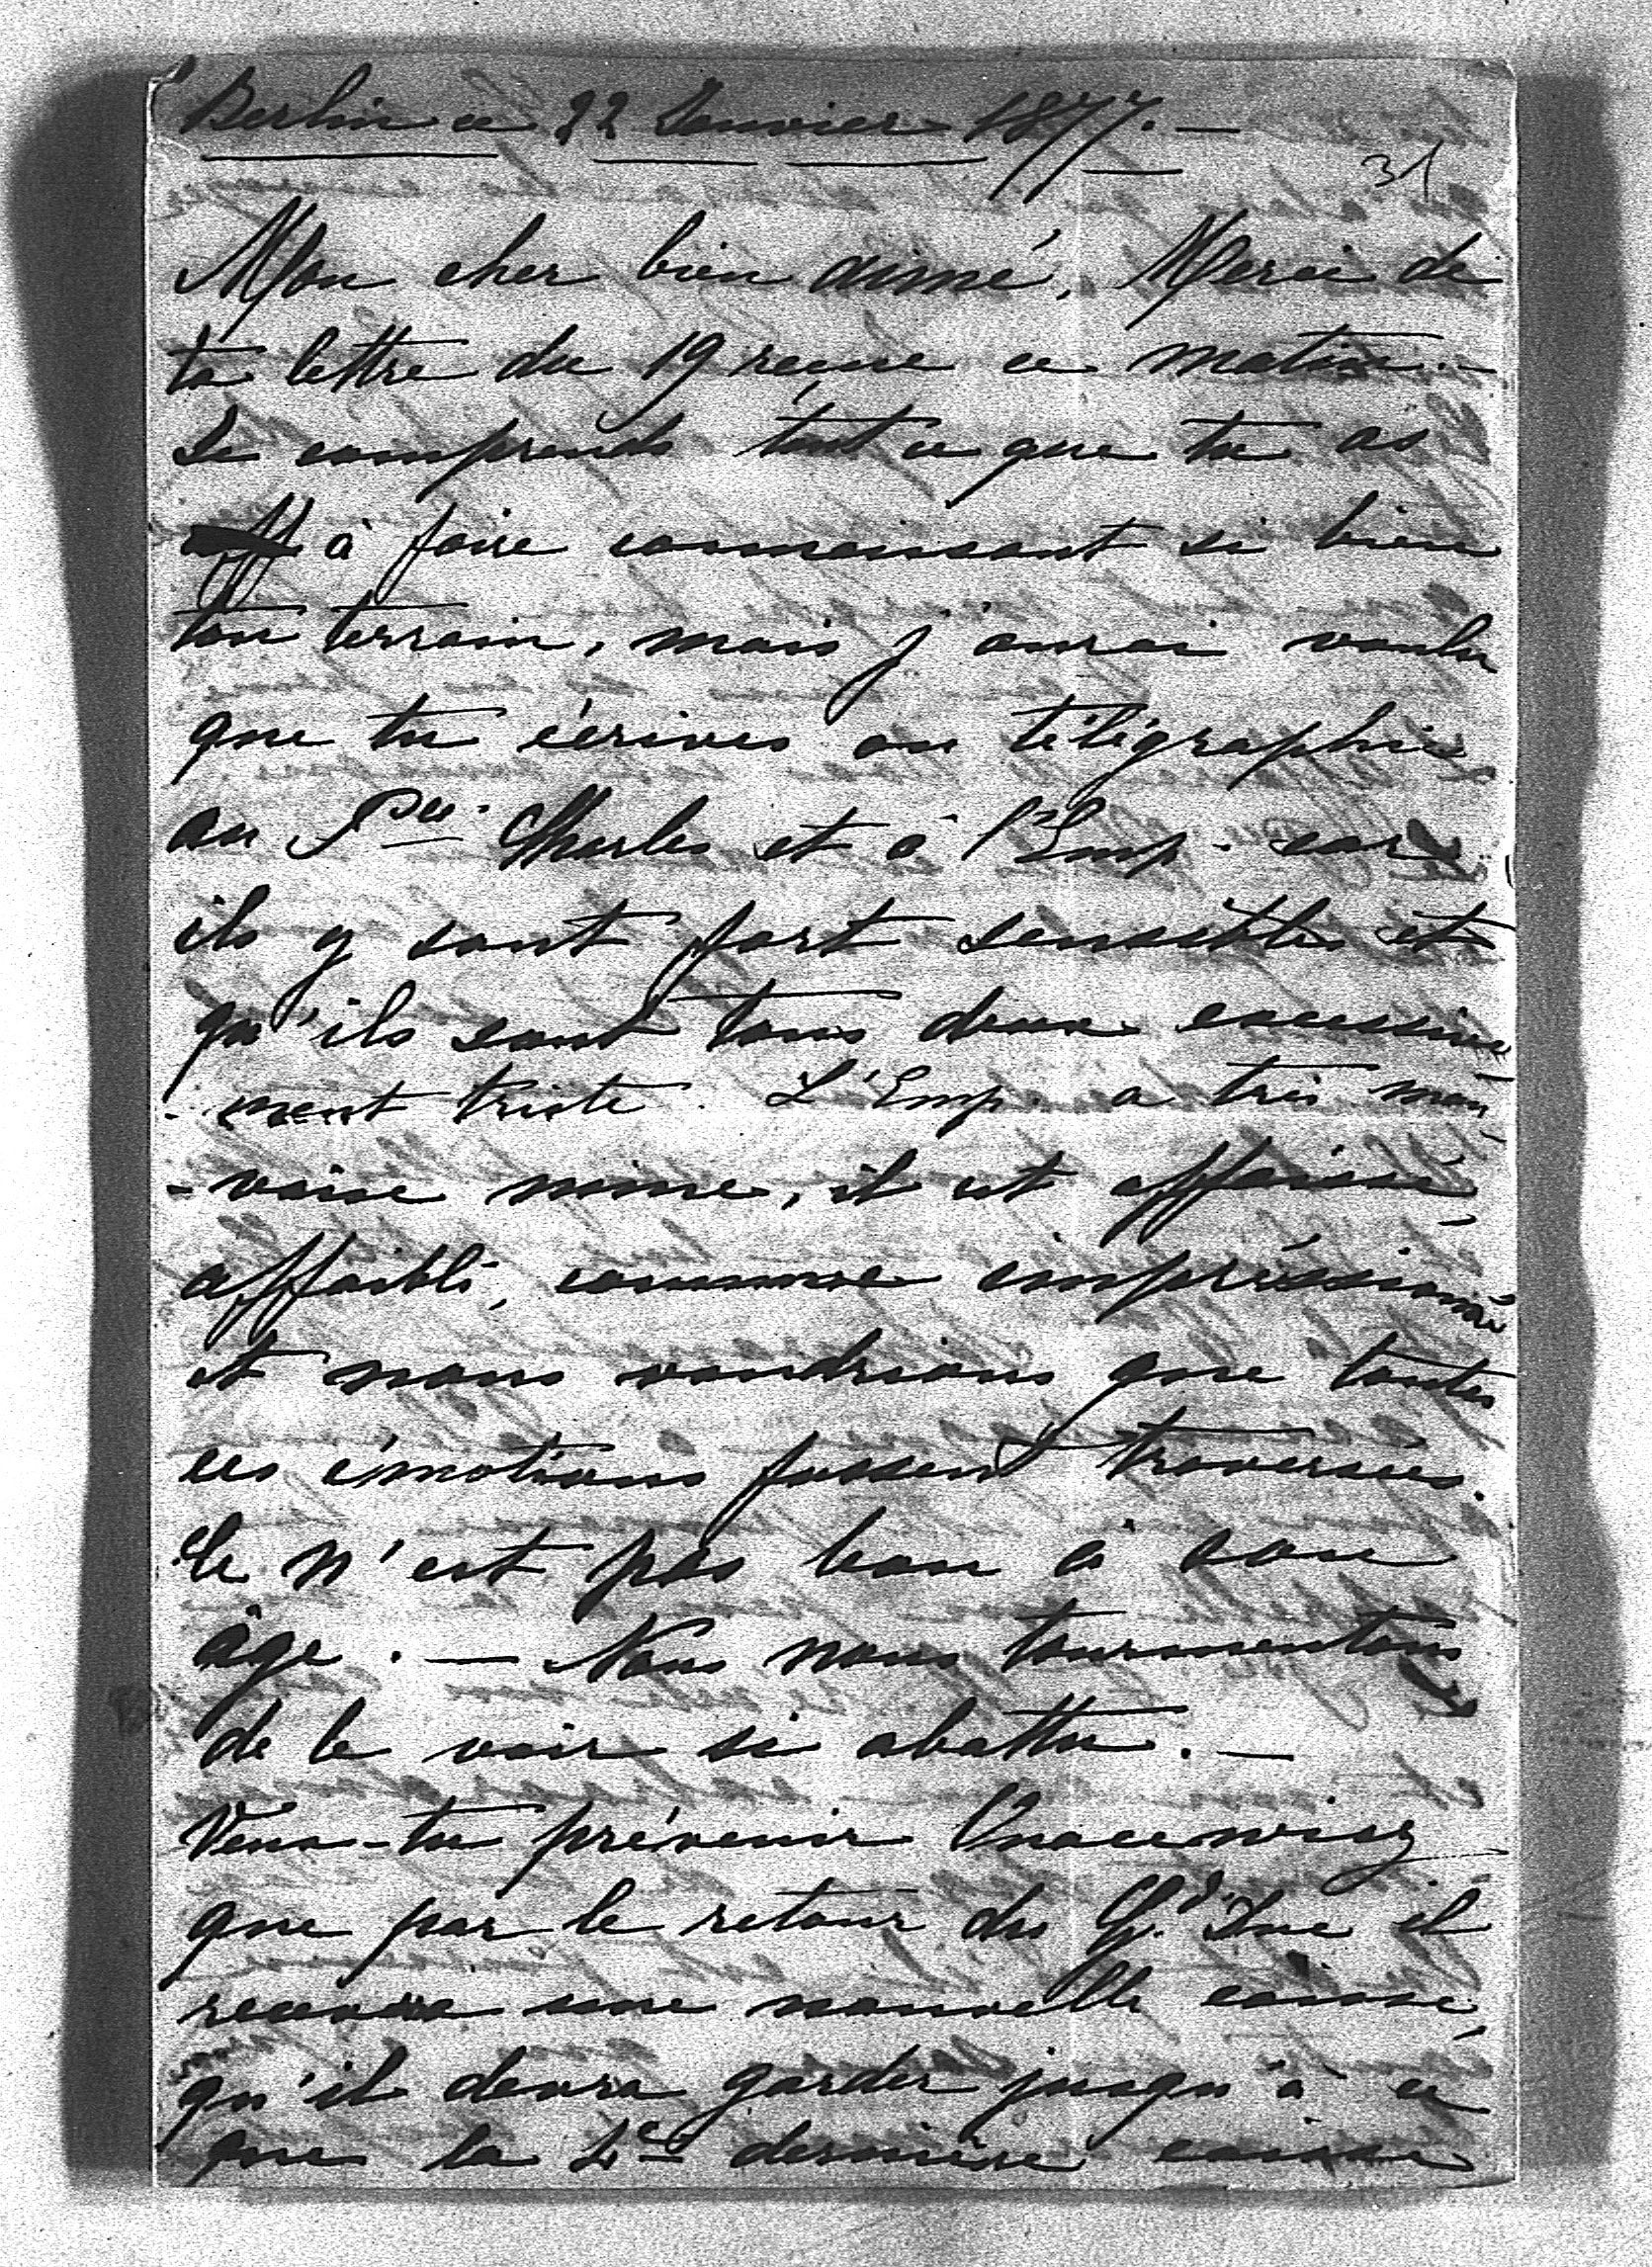 Berlin ce 22 Janvier 1877. —
31
Mon cher bien aimé, Merci de
ta lettre du 19 reçue ce matin. —
Je comprends tout ce que tu as
à faire connaissant si bien
ton terrain, mais j'aurai voulu
que tu écrives ou télégraphies
au Pce Charles et à l'Emp. car
ils y sont fort sensibles et
qu'ils sont tous deux excessive
- ment triste. L'Emp. a très mau
- vaise mine, il est affaissé,
affaibli, comme impréssionné
et nous voudrions que toutes
ces émotions fussent traversées.
Ce n'est pas bon à son
âge. — Nous nous tourmentons
de le voir si abattu. —
Veux-tu prévenir
que par le retour du Gd. Duc il
recevra une nouvelle caisse
qu'il devra garder jusqu'à ce
que la dernière caisse